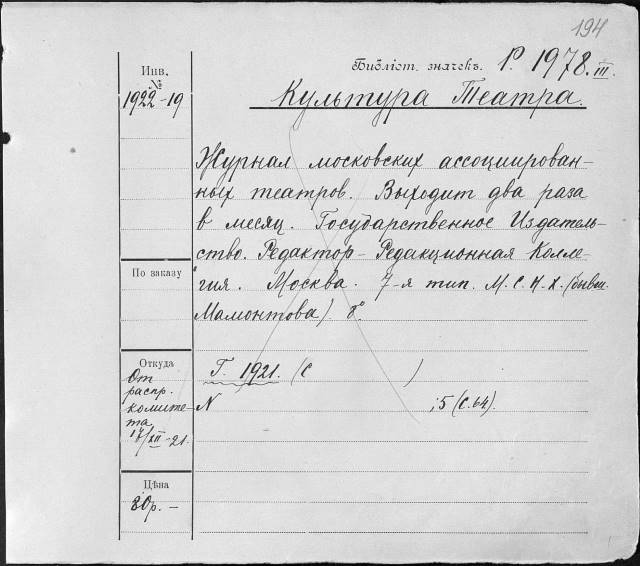 194
Библіот. значекъ. Р. 1978. III.
Инв. №
1922-19
Культура Театра.
Журнал московских ассоциирован-
ных театров. Выходит два раза
в месяц. Государственное Издатель-
ство. Редактор – Редакционная Колле-
гия. Москва. 7-я тип. М. С. Н. Х. (бывш.
Мамонтова) 8°.
По заказу
Откуда
От
распр.
комите-
та
17/XII-21.
Г. 1921. (С )
N ; 5 (с. 64).
Цѣна
80р. –